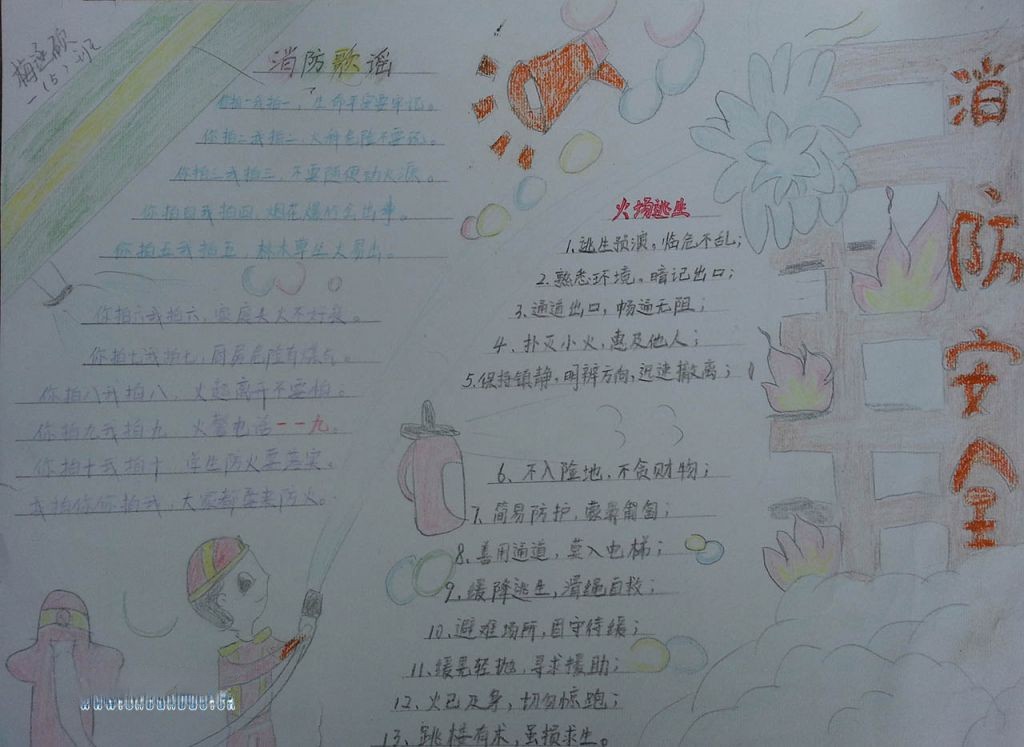 梅 砍
一(5)班
消防歌谣
你拍一我拍一,生命平安要牢记。
你拍二我拍二,火种危险不要玩。
你拍三我拍三,不要随便动火源。
你拍四我拍四,烟花爆竹会出事。
你拍五我拍五,林木草丛火易出。
你拍六我拍六,家庭失火不好受。
你拍七我拍七,厨房危险有煤气。
你拍八我拍八,火起离开不要怕。
你拍九我拍九,火警电话一一九。
你拍十我拍十,学生防火要落实。
我拍你你拍我,大家都要来防火。
火场逃生
1.逃生预演,临危不乱;
2.熟悉环境。暗记出口;
3.通道出口,畅通无阻;
4、扑灭小火,惠及他人;
5.保持镇静,明辨方向,迅速撤离;
6、不入险地,不贪财物;
7、简易防护,蒙鼻匍匐;
8、善用通道,莫入电梯;
9、缓降逃生,滑绳自救;
10、避难场所,固守待缓;
11、缓晃轻抛,寻求援助;
12、火已及身,切勿惊跑;
13、跳楼有术,虽损求生。
消防安全